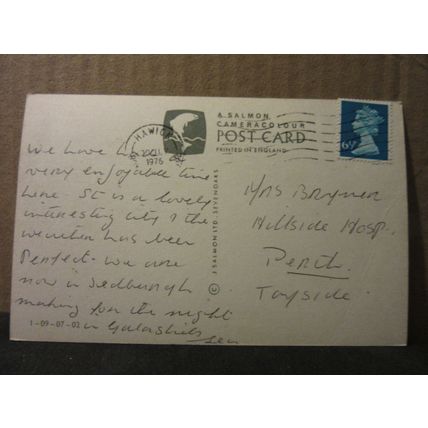 HAWICK
1976
A SALMON
CAMERACOLOUR
POST CARD
PRINTED IN ENGLAND
6½P
We have had
very enjoyable time
here. It is a lovely
interesting city & the
weather has been
Perfect. We are
now in Jedburgh
making for the night
in Galashiels
1-09-07-02
J. SALMON LTD. SEVENOAKS
©
Mrs
Hillside Hosp.
Perth
Tayside